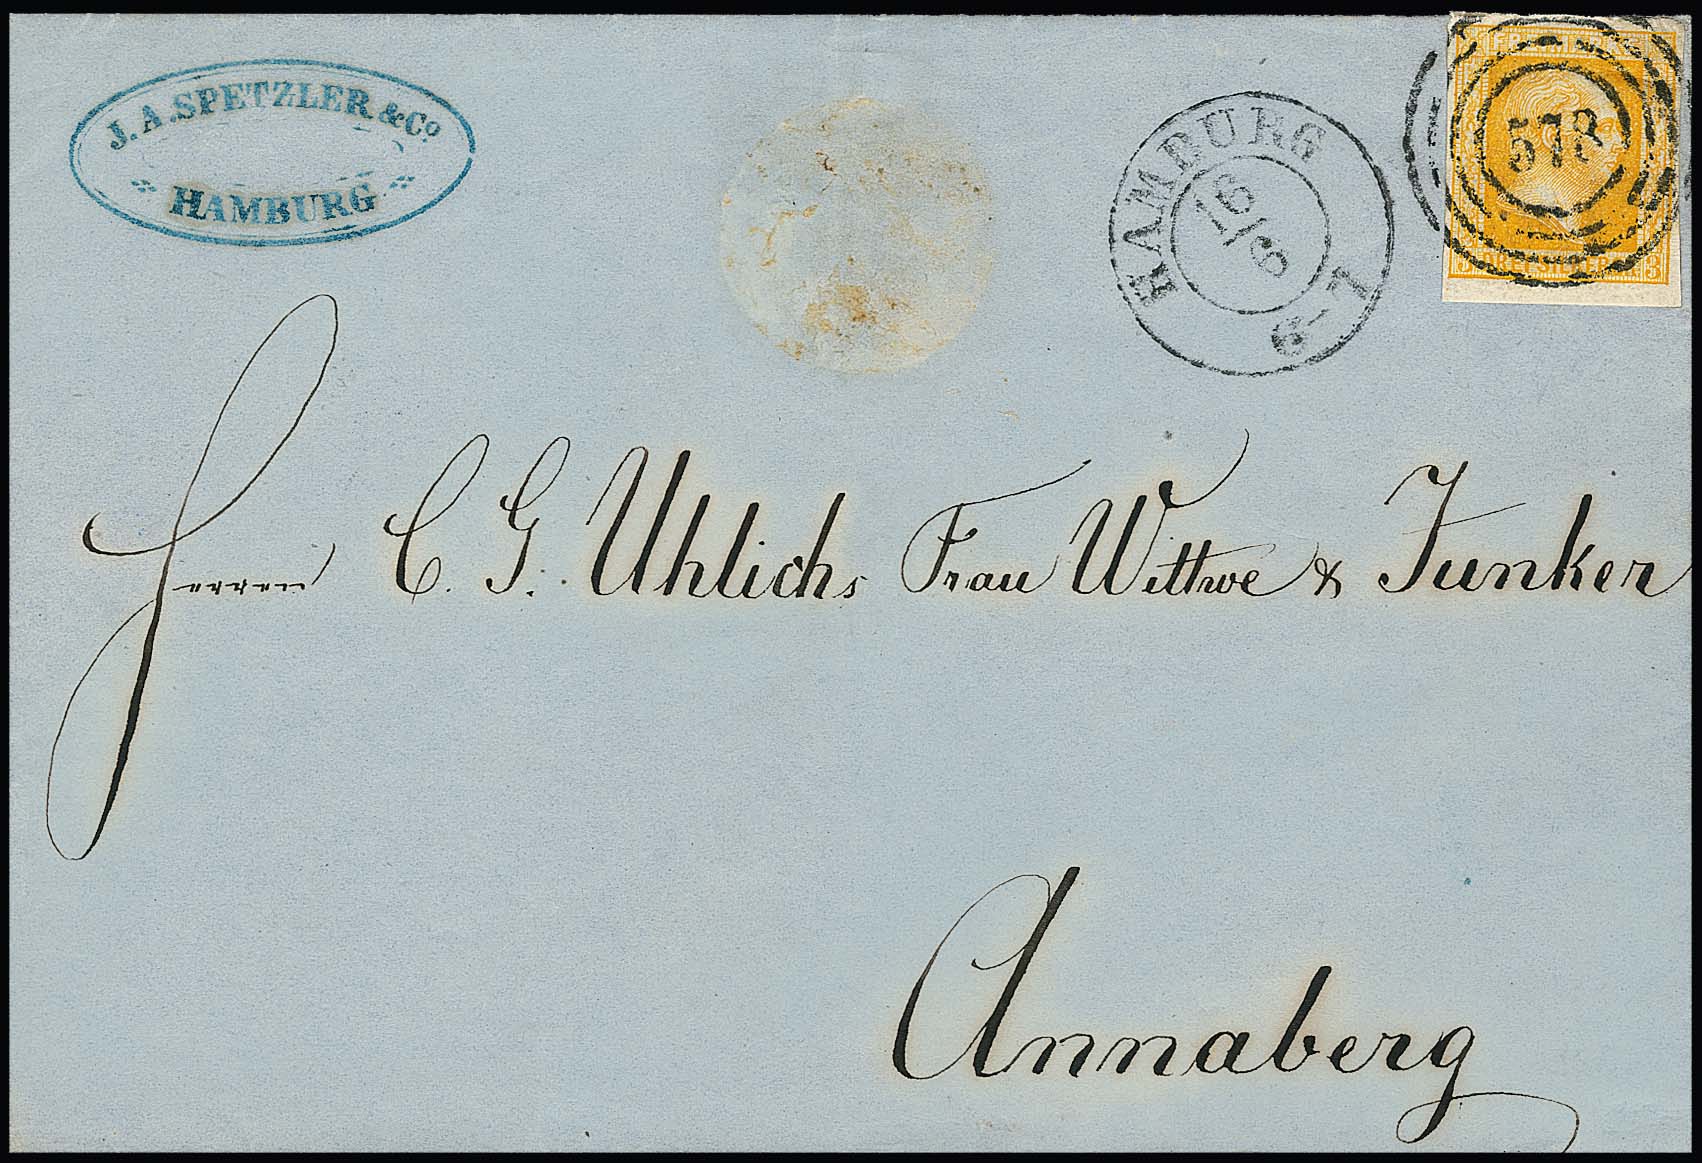 J. A. SPETZLER & Cº
HAMBURG
HAMBURG
16/6
6-7
578
3 DREI SILBERGR. 3
Herren C. G. Uhlichs Frau Wittwe & Junker
Annaberg